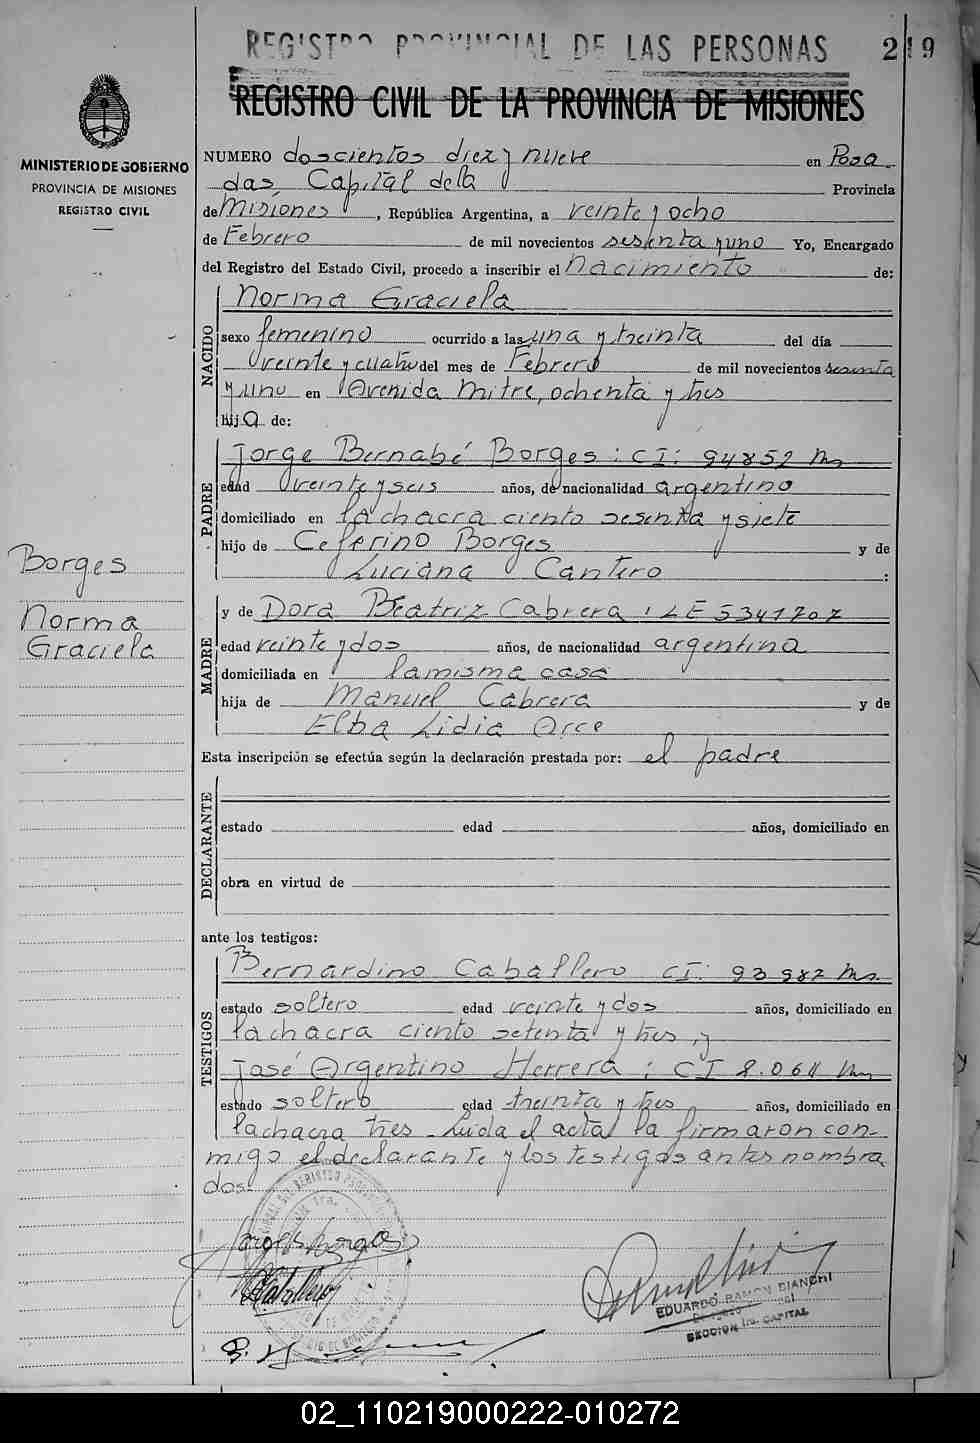 REGISTRO PROVINCIAL DE LAS PERSONAS
219
REGISTRO CIVIL DE LA PROVINCIA DE MISIONES
MINISTERIO DE GOBIERNO
PROVINCIA DE MISIONES
REGISTRO CIVIL
NUMERO doscientos diez y nueve en Posa
das, Capital de la Provincia
de Misiones, República Argentina, a veinte y ocho
de Febrero de mil novecientos sesenta y uno Yo, Encargado
del Registro del Estado Civil, procedo a inscribir el nacimiento de:
NACIDO
Norma Graciela
sexo femenino ocurrido a las una y treinta del día
veinte y cuatro del mes de Febrero de mil novecientos sesenta
y uno en Avenida Mitre, ochenta y tres
hija de:
PADRE
Jorge Bernabé Borges: CI: 94852 Ms
edad veinte y seis años, de nacionalidad argentino
domiciliado en la chacra ciento sesenta y siete
hijo de Ceferino Borges y de
Luciana Cantero :
Borges
Norma
Graciela
MADRE
y de Dora Beatriz Cabrera: LE 5341707
edad veinte y dos años, de nacionalidad argentina
domiciliada en la misma casa
hija de Manuel Cabrera y de
Elba Lidia Arce
Esta inscripción se efectúa según la declaración prestada por: el padre
DECLARANTE
estado edad años, domiciliado en
obra en virtud de
ante los testigos:
TESTIGOS
Bernardino Caballero CI: 93982 Ms.
estado soltero edad veinte y dos años, domiciliado en
la chacra ciento setenta y tres, y
José Argentino Herrera: CI 8.061 Ms
estado soltero edad treinta y tres años, domiciliado en
la chacra tres - Leida el acta la firmaron con-
migo el declarante y los testigos antes nombra
dos.
Jorge B. Borges
Caballero
EDUARDO RAMON BIANCHI
SECCION 1ra. CAPITAL
02_110219000222-010272